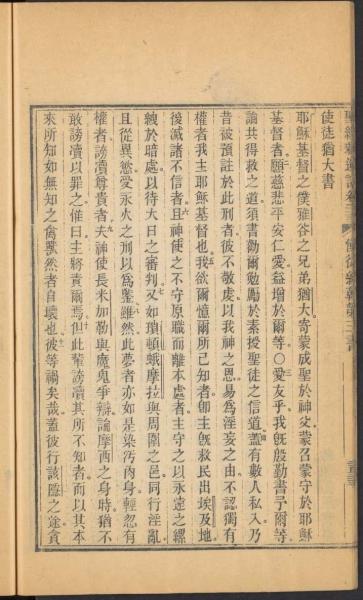 使徒猶大書
耶穌基督之僕雅谷之兄弟猶大寄蒙成聖於神父蒙召蒙守於耶穌
基督者願慈悲平安仁愛益增於爾等○愛友乎我旣殷勤書予爾等
論共得救之道須書勸爾勉勵於素授聖徒之信道蓋有數人私入乃
昔被預註於此刑者彼不敬虔以我神之恩易爲淫妄之由不認獨有
權者我主耶穌基督也我欲爾憶爾所已知者卽主旣救民出埃及地
後滅諸不信者且神使之不守原職而離本處者主守之以永遠之縲
絏於暗處以待大日之審判又如瑣頓蛾摩拉與周圍之邑同行淫亂
且從異慾受永火之刑以爲鑒雖然此夢者亦如是染汚肉身輕忽有
權者謗瀆尊貴者夫神使長米加勒與魔鬼爭辯論摩西之身時猶不
敢謗瀆以罪之惟曰主將責爾焉但此輩謗瀆其所不知者而以其本
來所知如無知之禽獸然者自壞也彼等禍矣哉蓋彼行該隱之途貪